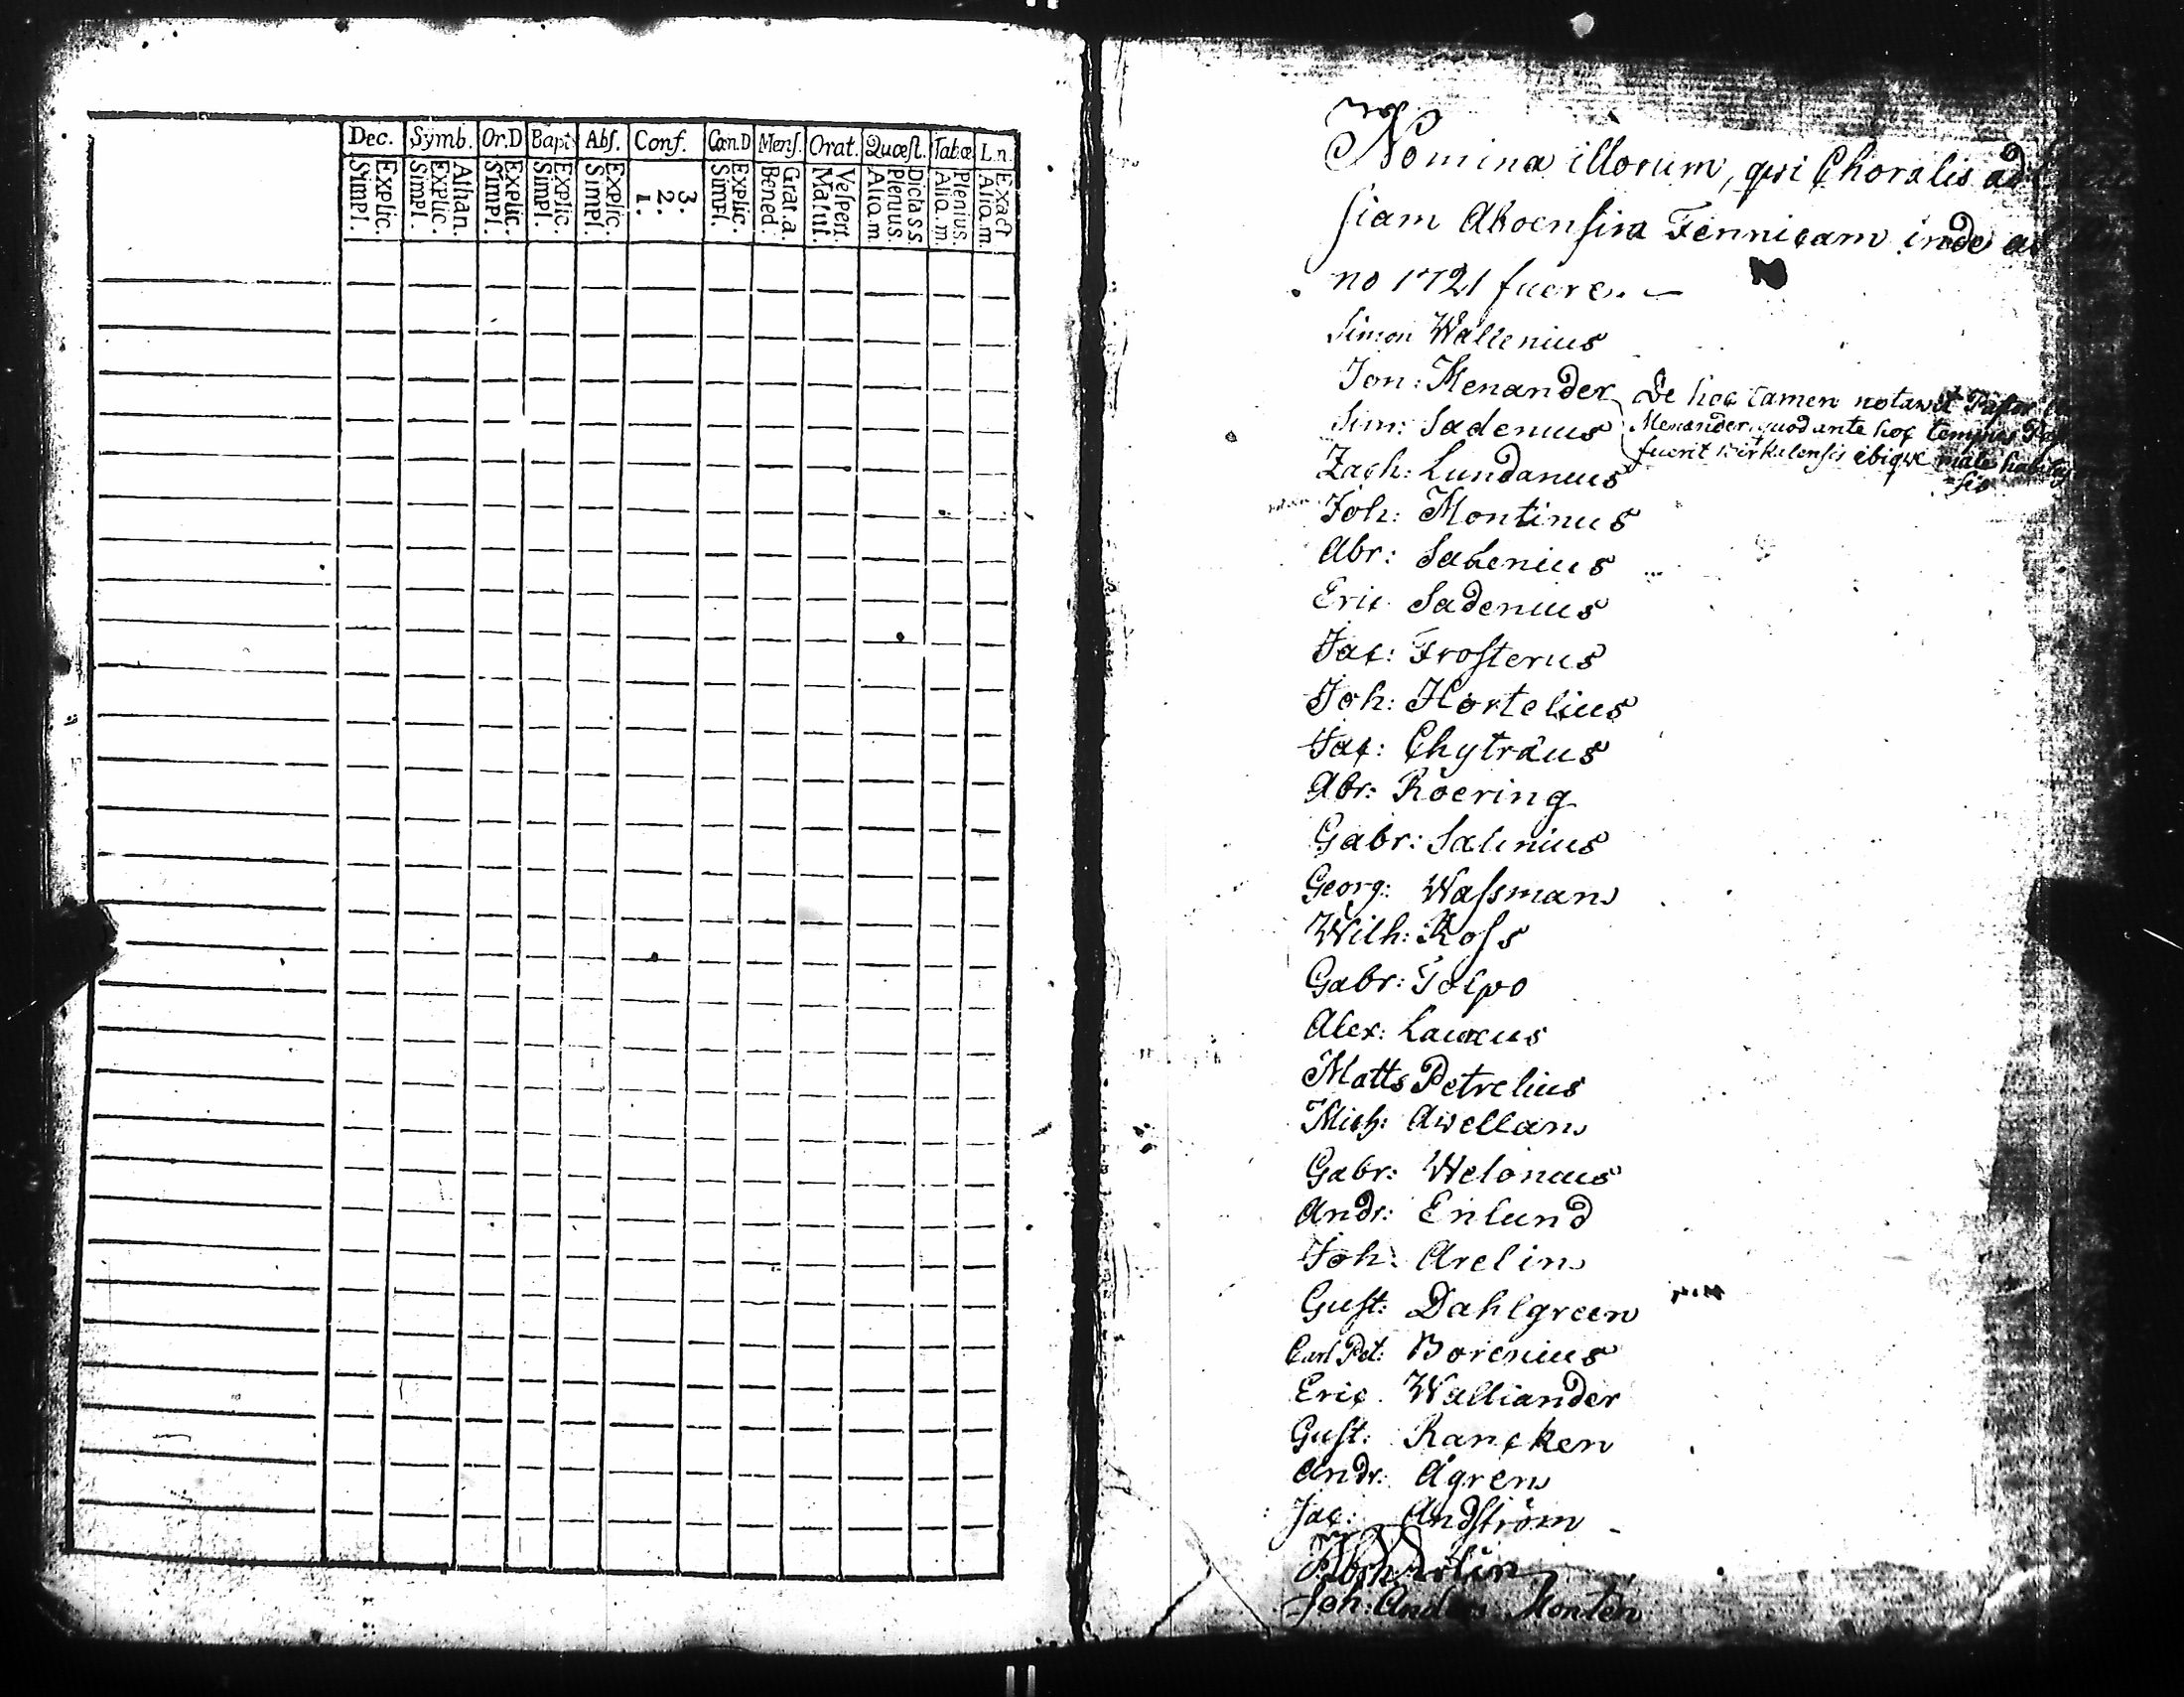 Dec. Symb. Or.D Bapt. Abſ. Conf. Cœn.D Menſ. Orat. Quæſt. Tab.œ L.n.
Simpl. Explic. Simpl. Explic. Athan. Simpl. Explic. Simpl. Explic. Simpl. Explic. 1. 2. 3. Simpl. Explic. Bened. Grat.a. Matut. Veſpert. Alia.m Plenius. Dicta s.s. Alia.m. Plenius. Alia.m. Exact
Nomina illorum, qvi Choralis ad
ſiam Aboensem Fennicam inde a
no 1721 fuere. —
Simon Wallenius
Jon: Menander
Sim: Sadenius
De hoc tamen notavit Paſtor
Menander, quod ante hoc tempus
fuerit Kirkulensis ibiqve male
Zach: Lundanus
Joh: Montinus
Abr: Sadenius
Eric Sadenius
Jac: Froſterus
Joh: Hortelius
Jac: Chyträus
Abr: Röering
Gabr: Salinius
Georg: Waſsman
Wilh: Roſs
Gabr: Tolpo
Alex: Lauræus
Matts Petrelius
Mich: Avellan
Gabr: Welonius
Andr: Enlund
Joh: Arelin
Guſt: Dahlgreen
Carl Pet: Borenius
Eric Walliander
Guſt: Rancken
Andr: Ågren
Jac: Andſtröm
Joh: Anders Monten